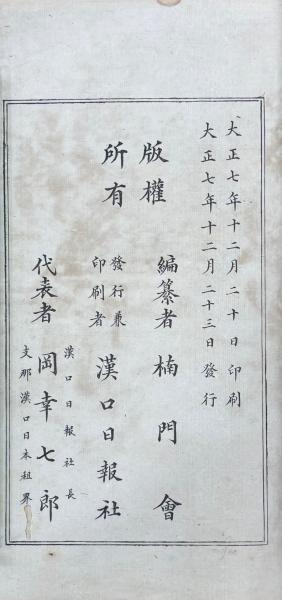 大正七年十二月二十日印刷
大正七年十二月二十三日發行
版權
所有
編纂者 楠門會
發行兼
印刷者
漢口日報社
漢口日報社長
支那漢口日本租界
代表者 岡幸七郎